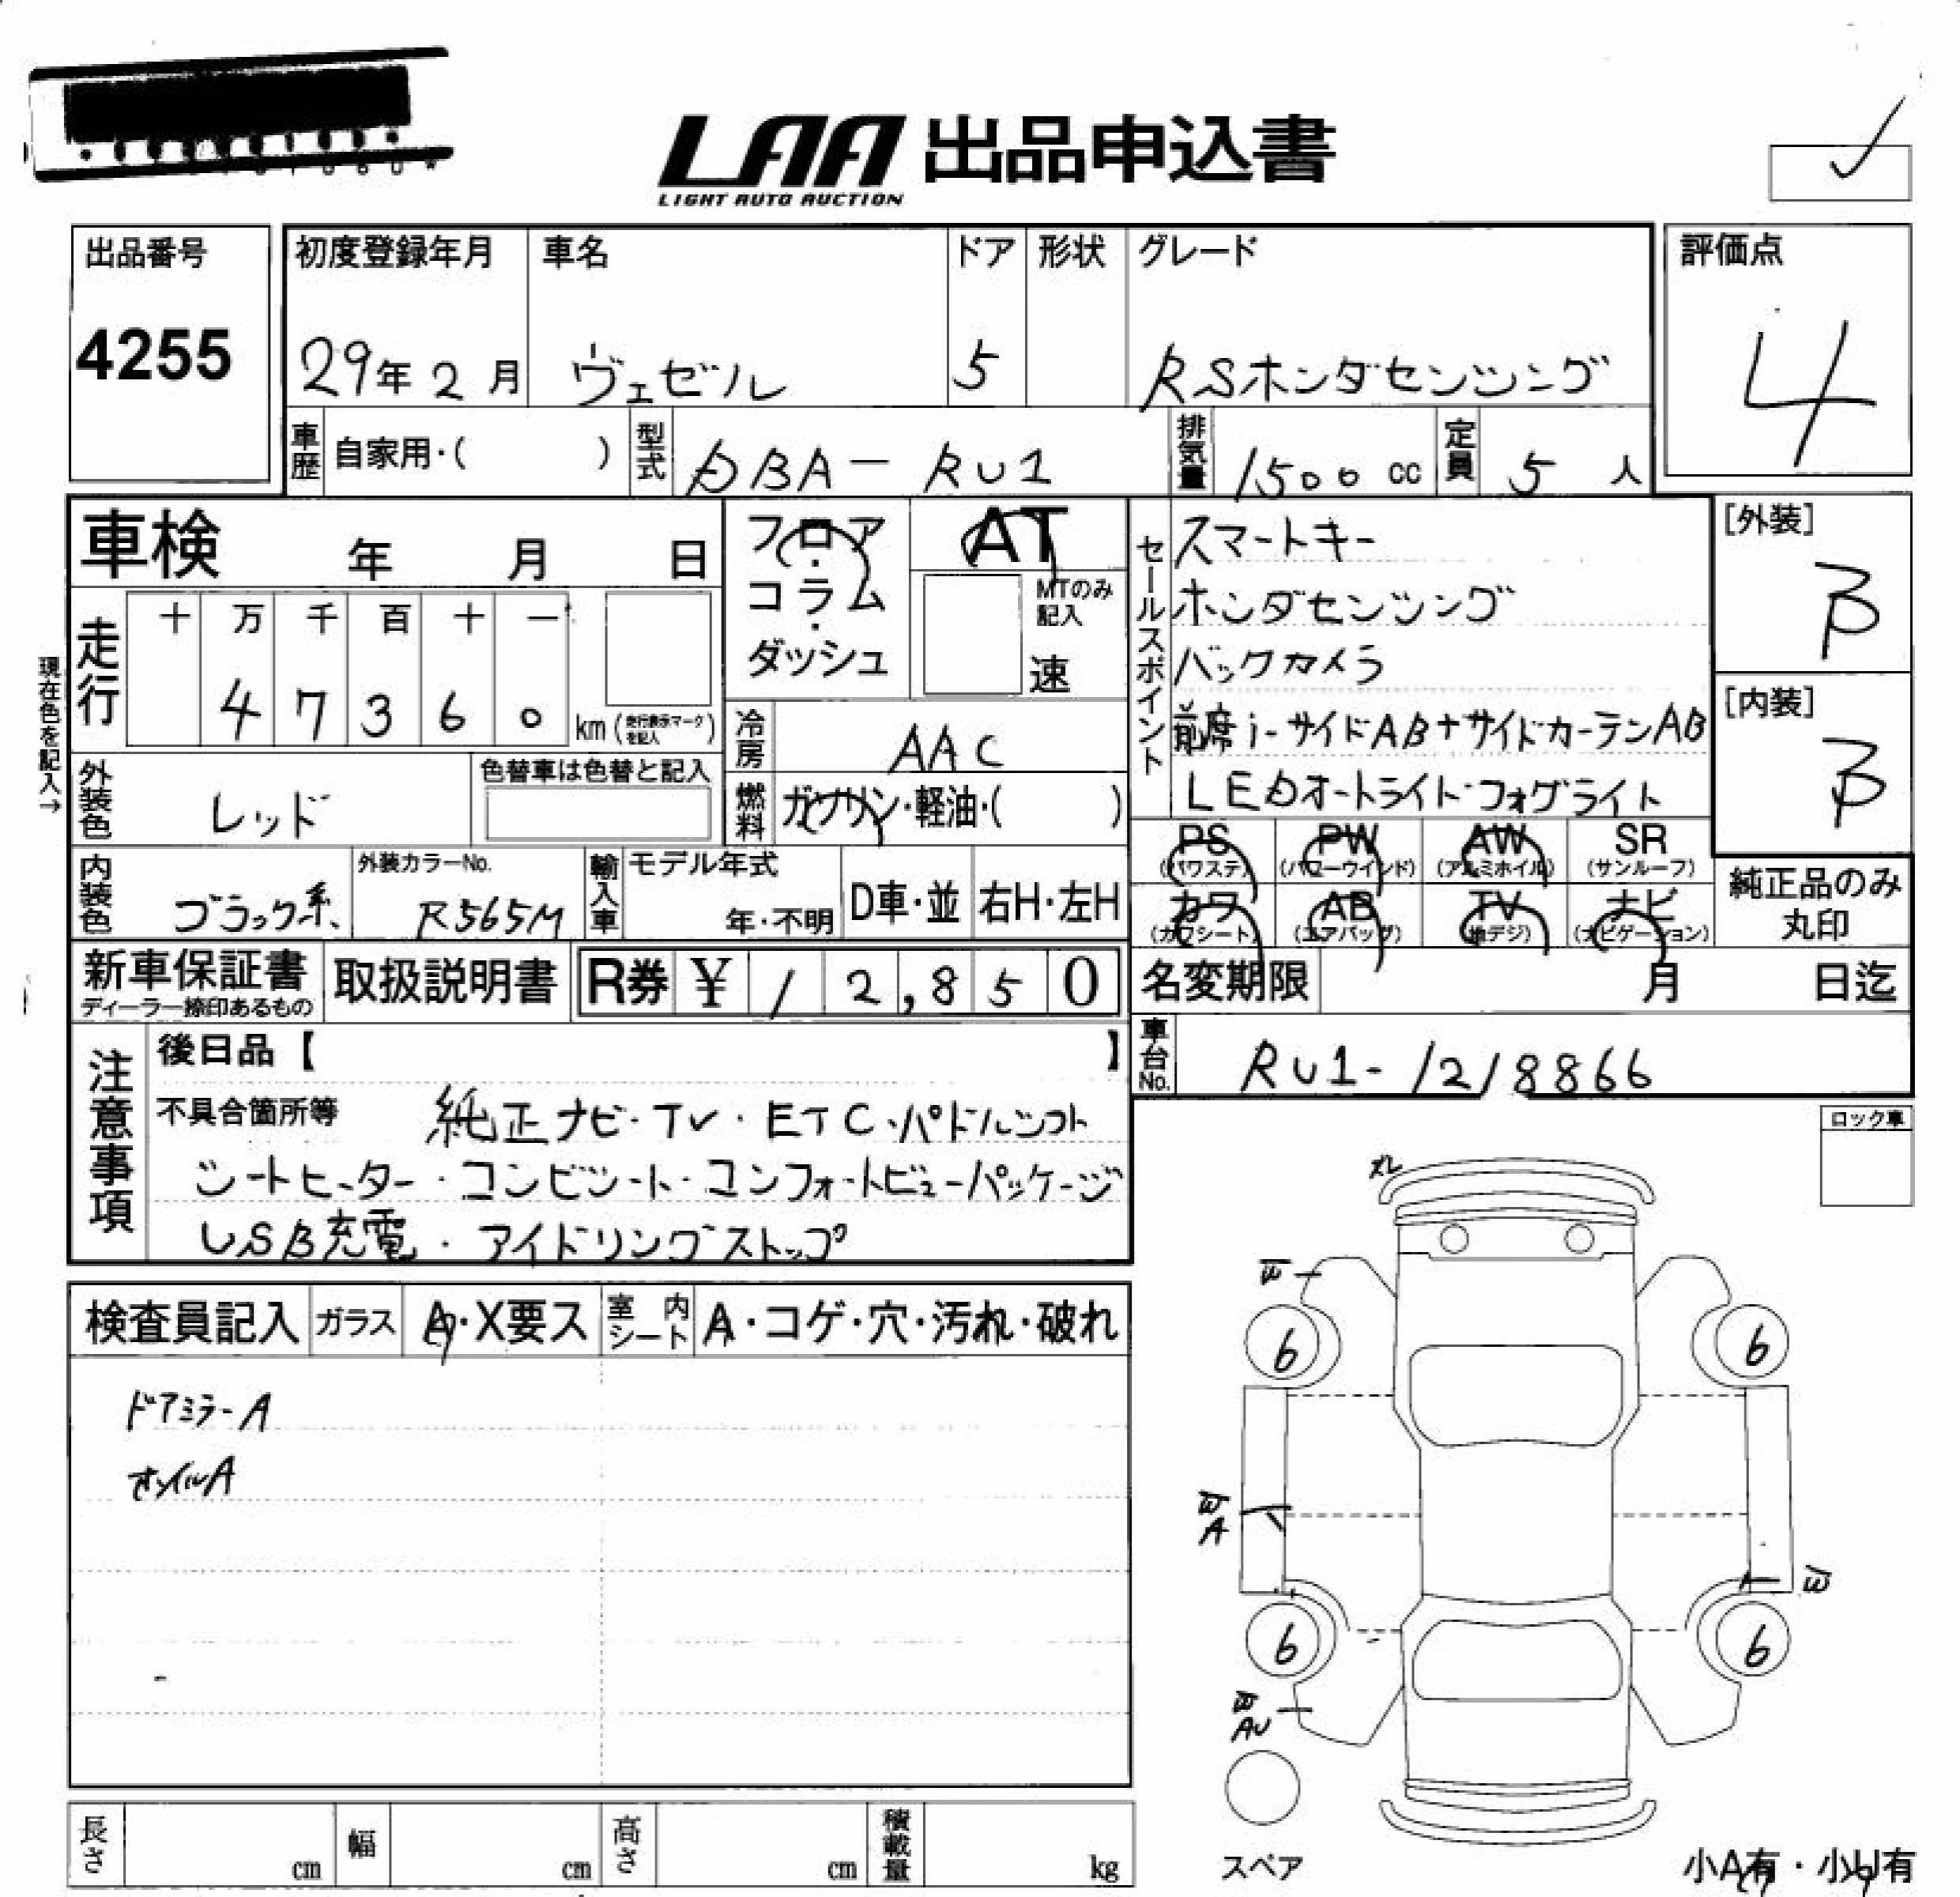 LAA 出品申込書
LIGHT AUTO AUCTION
出品番号
4255
初度登録年月
29年 2月
車名
ヴェゼル
ドア
5
形状
グレード
RSホンダセンシング
評価点
4
車歴
自家用・( )
型式
DBA-RU1
排気量
1500 cc
定員
5 人
車検 年 月 日
フロア・コラム・ダッシュ
AT
MTのみ記入
速
セールスポイント
スマートキー
ホンダセンシング
バックカメラ
前席i-サイドAB+サイドカーテンAB
LEDオートライト・フォグライト
[外装]
B
[内装]
B
現在色を記入→
走行
十 万 千 百 十 一
4 7 3 6 0
km (走行表示マークを記入)
冷房
AAC
外装色
レッド
色替車は色替と記入
燃料
ガソリン・軽油・( )
PS (パワステ)
PW (パワーウインド)
AW (アルミホイル)
SR (サンルーフ)
カワ (カワシート)
AB (エアバッグ)
TV (地デジ)
ナビ (ナビゲーション)
純正品のみ丸印
内装色
ブラック系
外装カラーNo.
R565M
輸入車
モデル年式
年・不明
D車・並
右H・左H
新車保証書
ディーラー捺印あるもの
取扱説明書
R券 ¥ 12,850
名変期限 月 日迄
車台No.
RU1-1218866
注意事項
後日品【 】
不具合箇所等 純正ナビ・TV・ETC・パドルシフト
シートヒーター・コンビシート・コンフォートビューパッケージ
USB充電・アイドリングストップ
ロック車
検査員記入
ガラス
A・X要ス
室内シート
A・コゲ・穴・汚れ・破れ
ドアミラーA
ホイルA
W
6
6
W
A
W
6
6
W
AU
スペア
小A有・小U有
長さ cm
幅 cm
高さ cm
積載量 kg